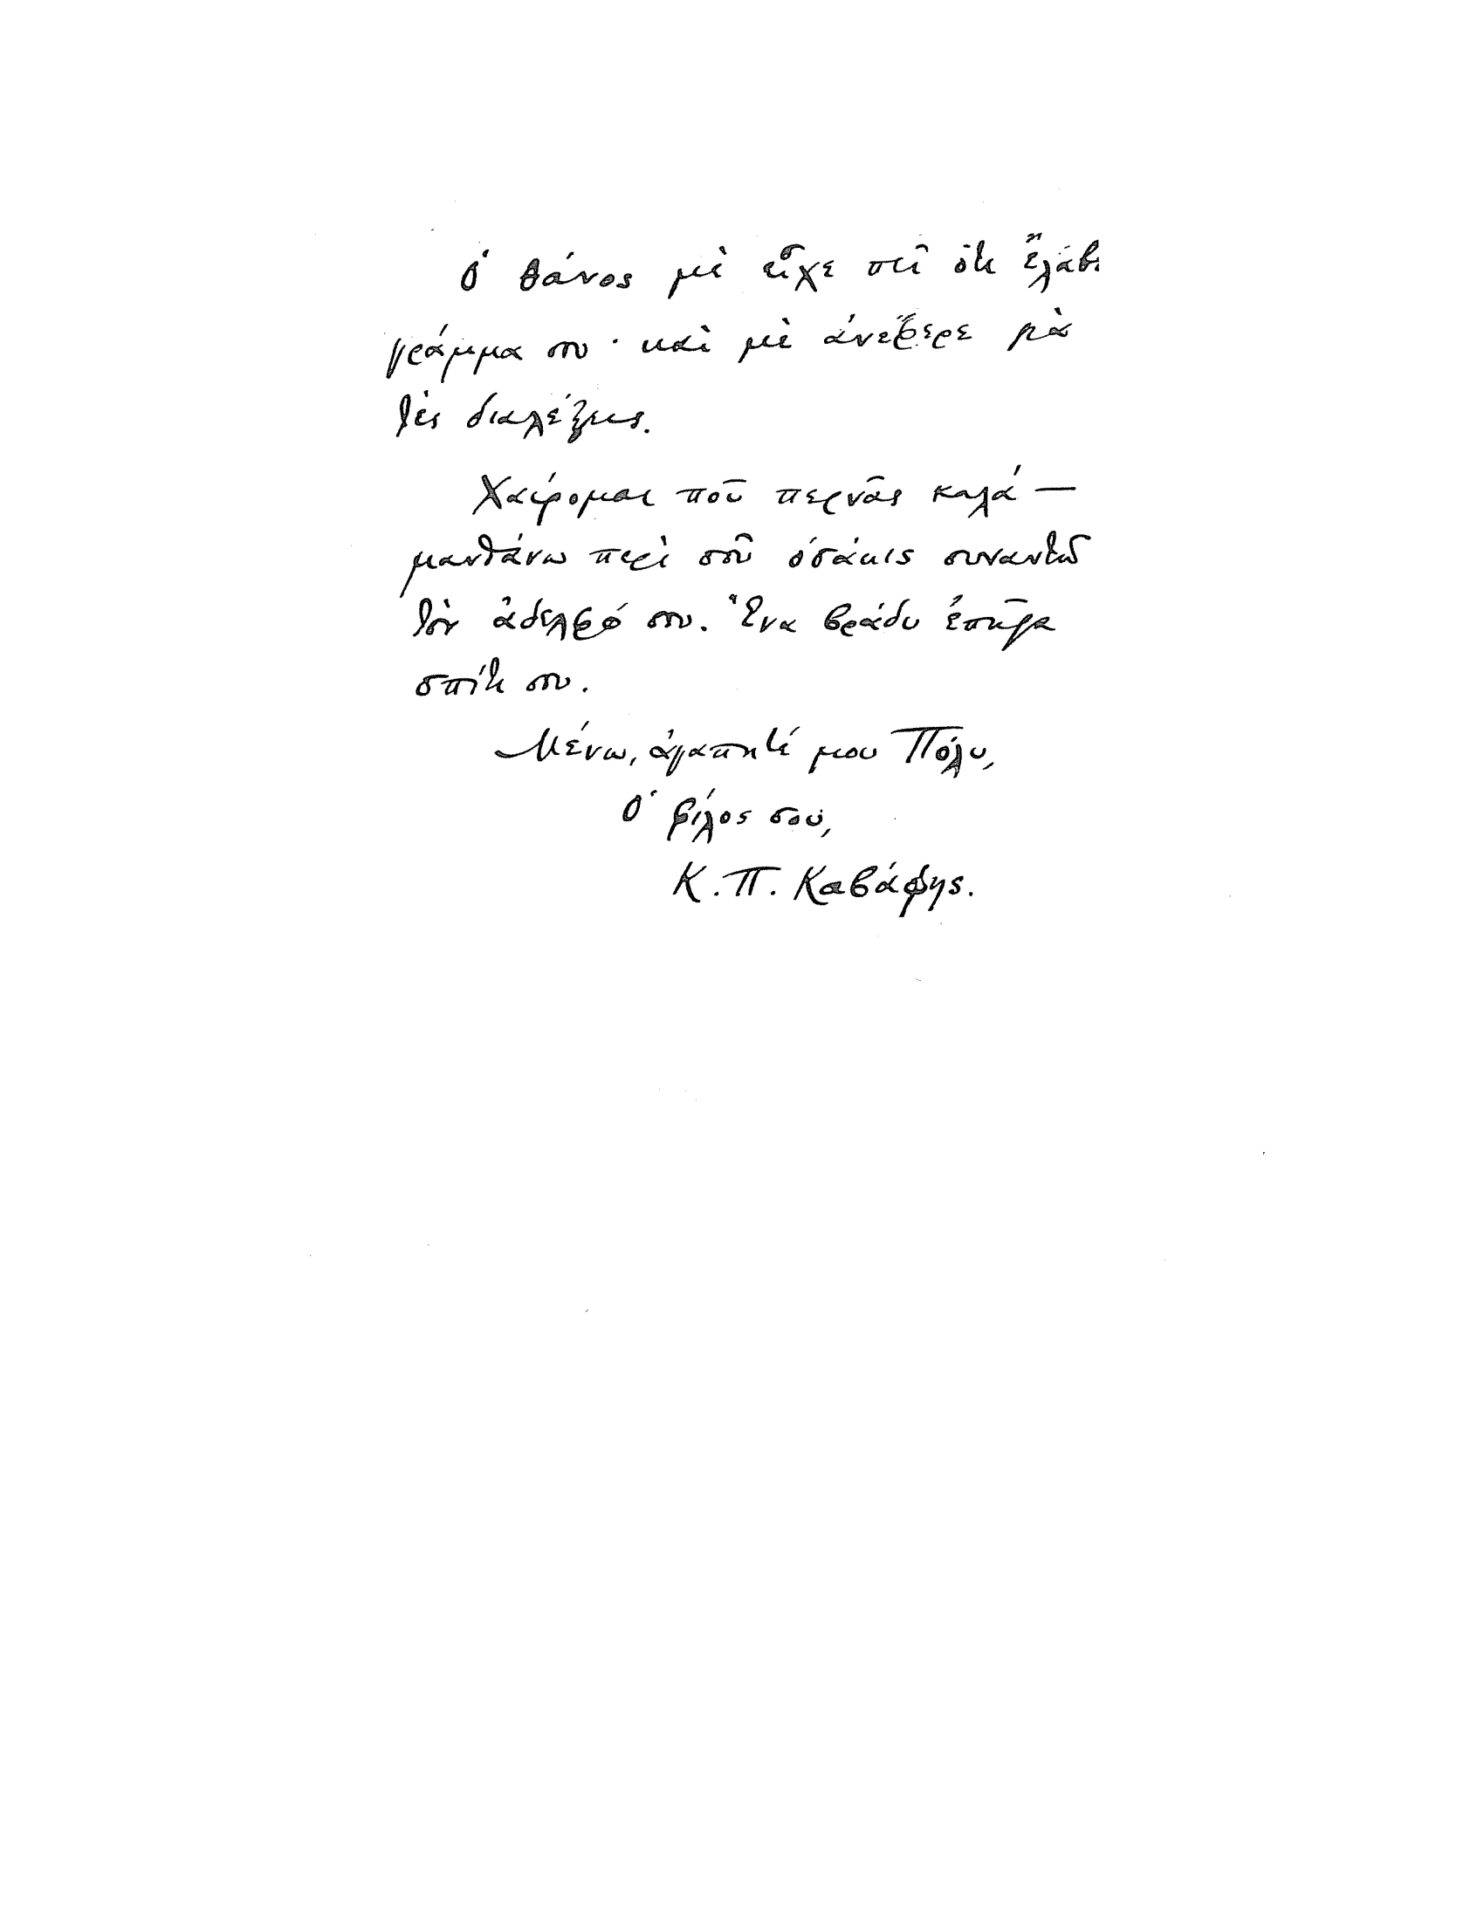 Ὁ Θάνος μὲ εἶχε πεῖ ὅτι ἔλαβε
γράμμα σου· καὶ μὲ ἀνέφερε γιὰ
τὲς διαλέξεις.
Χαίρομαι ποῦ περνᾶς καλά —
μανθάνω περὶ σοῦ ὁσάκις συναντῶ
τὸν ἀδελφό σου. Ἕνα βράδυ ἐπῆγα
σπίτι σου.
Μένω, ἀγαπητέ μου Πόλυ,
Ὁ φίλος σου,
Κ. Π. Καβάφης.